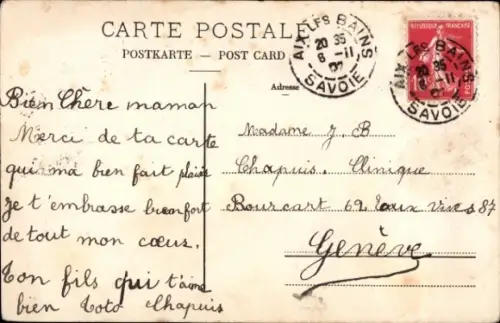 CARTE POSTALE
POSTKARTE — POST CARD
Adresse
AIX LES BAINS
20 35
6 -11
07
SAVOIE
RÉPUBLIQUE FRANÇAISE
POSTES
AIX LES BAINS
20 35
6 -11
07
SAVOIE
Bien Chère maman
Merci de ta carte
qui m'a bien fait plaisir
je t'embrasse bien fort
de tout mon cœur.
Ton fils qui t'aime
bien Toto Chapuis
Madame J. B
Chapuis. Clinique
Bourcart 62 Eaux Vives 87
Genève